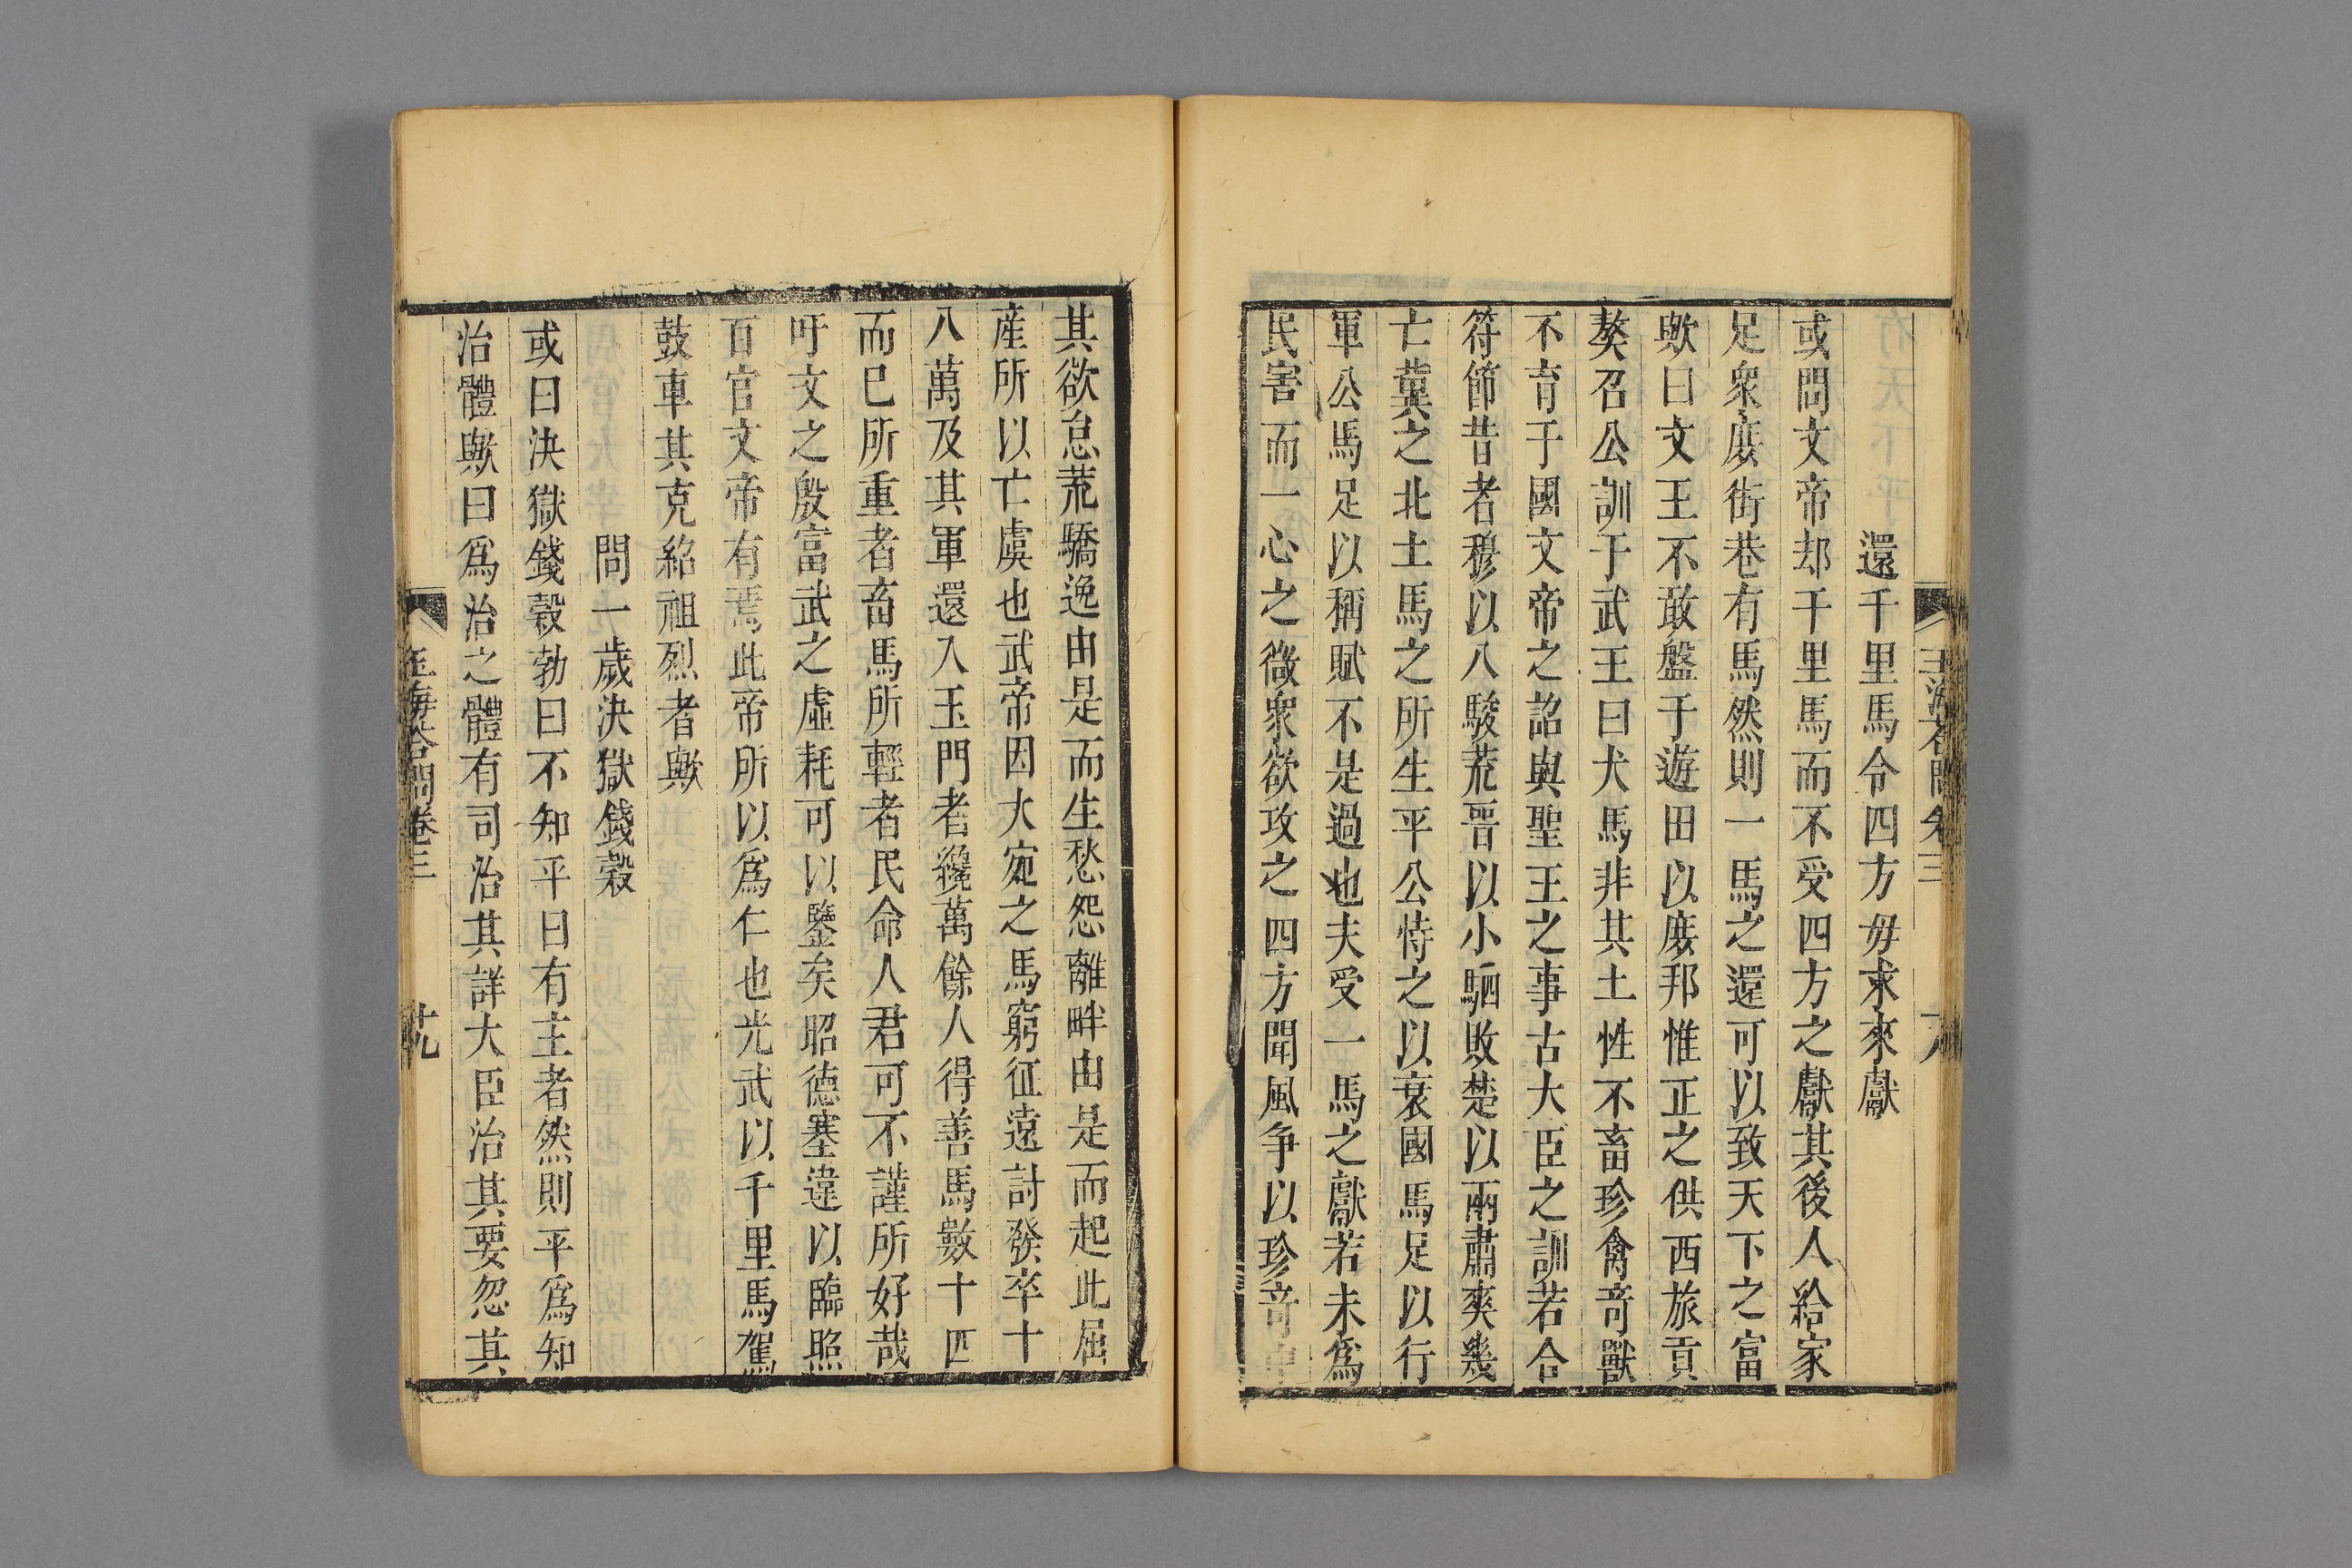 還千里馬令四方毋求來獻
或問文帝却千里馬而不受四方之獻其後人給家
足衆庶街巷有馬然則一馬之還可以致天下之富
歟曰文王不敢盤于遊田以庶邦惟正之供西旅貢
獒召公訓于武王曰犬馬非其土性不畜珍禽奇獸
不育于國文帝之詔與聖王之事古大臣之訓若合
符節昔者穆以八駿荒晉以小駟敗楚以兩肅爽幾
亡冀之北土馬之所生平公恃之以衰國馬足以行
軍公馬足以稱賦不是過也夫受一馬之獻若未爲
民害而一心之微衆欲攻之四方聞風争以珍奇
其欲怠荒驕逸由是而生愁怨離畔由是而起此屈
産所以亡虞也武帝因大宛之馬窮征遠討發卒十
八萬及其軍還入玉門者纔萬餘人得善馬數十匹
而已所重者畜馬所輕者民命人君可不謹所好哉
吁文之殷富武之虛耗可以鑒矣昭德塞違以臨照
百官文帝有焉此帝所以爲仁也光武以千里馬駕
鼓車其克紹祖烈者歟
問一歲決獄錢穀
或曰決獄錢穀勃曰不知平曰有主者然則平爲知
治體歟曰爲治之體有司治其詳大臣治其要忽其
玉海答問卷三
廿九